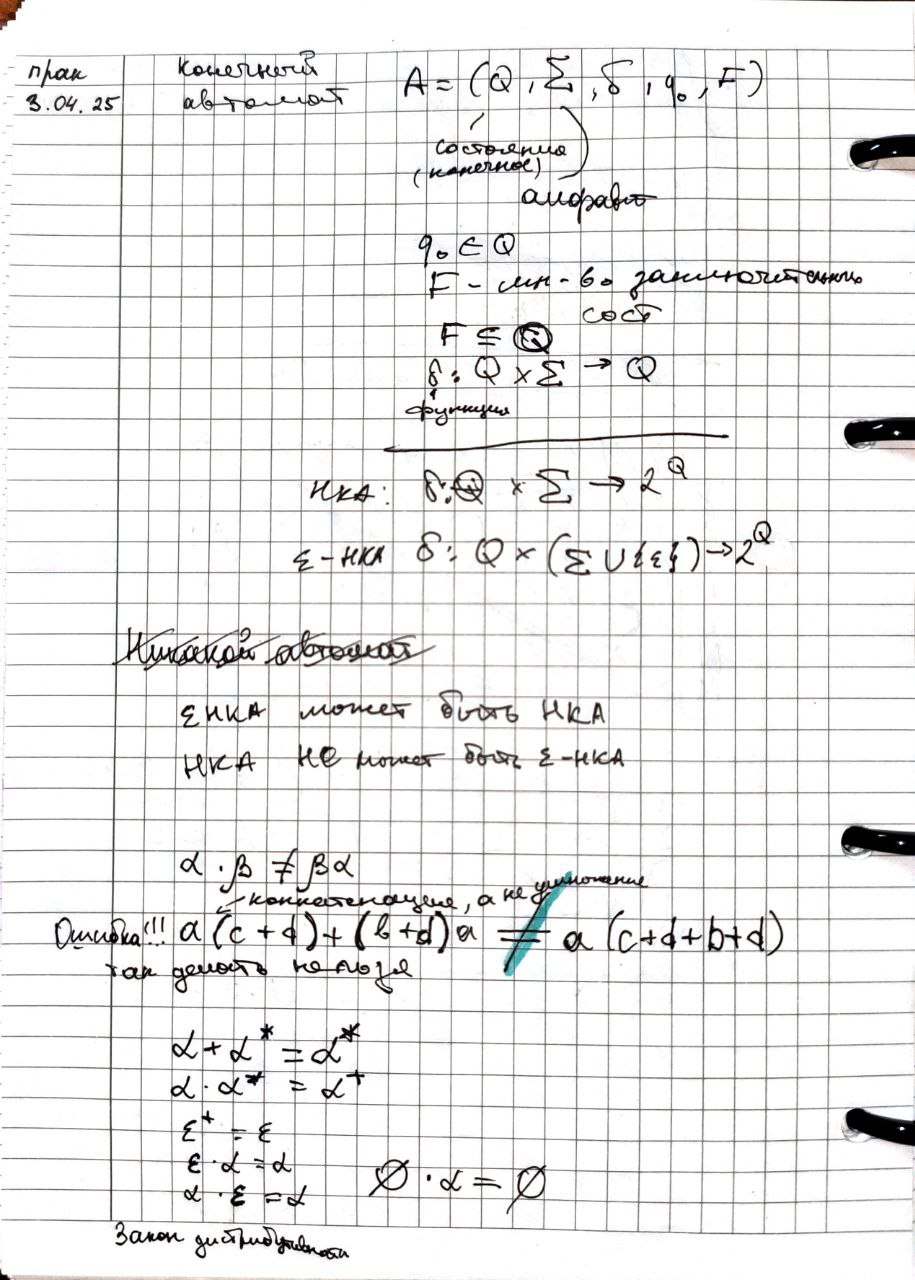 прак
3.04.25
конечный
автомат
A = (Q, Σ, δ, q₀, F)
состояние
(конечное)
алфавит
q₀ ∈ Q
F - мн-во заключительных
сост
F ⊆ Q
δ: Q × Σ → Q
функция
НКА: δ: Q × Σ → 2^Q
ε-НКА δ: Q × (Σ ∪ {ε}) → 2^Q
Никакой автомат
εНКА может быть НКА
НКА НЕ может быть ε-НКА
α · β ≠ βα
конкатенация, а не умножение
Ошибка!!! a (c + d) + (b + d) a ≠ a (c+d+b+d)
так делать нельзя
α + α* = α*
α · α* = α⁺
ε⁺ = ε
ε · α = α
α · ε = α
∅ · α = ∅
Закон дистрибутивности